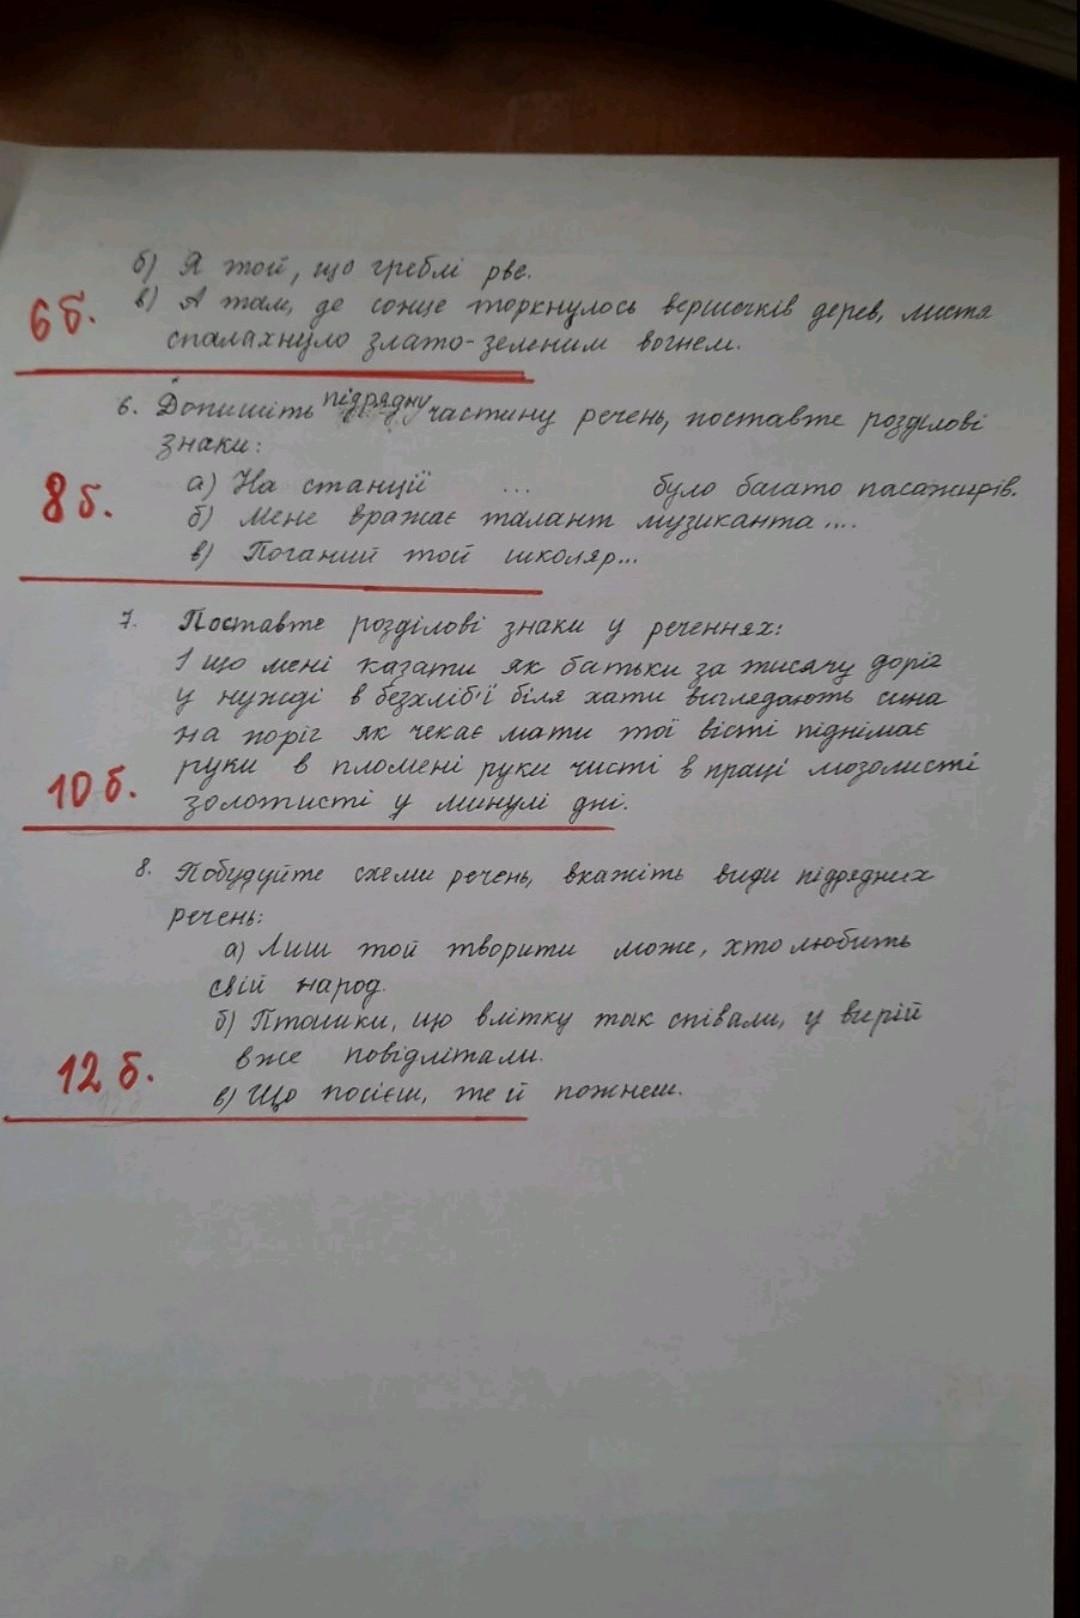 б) Я той, що греблі рве.
6 б. в) А там, де сонце торкнулось вершечків дерев, листя
спалахнуло злато-зеленим вогнем.
6. Допишіть підрядну частину речень, поставте розділові
знаки:
8 б. а) На станції ... було багато пасажирів.
б) Мене вражає талант музиканта ....
в) Поганий той школяр...
7. Поставте розділові знаки у реченнях:
І що мені казати як батьки за тисячу доріг
у нужді в безхліб'ї біля хати виглядають сина
на поріг як чекає мати тої вісті піднімає
руки в пломені руки чисті в праці мозолисті
10 б. золотисті у минулі дні.
8. Побудуйте схеми речень, вкажіть види підрядних
речень:
а) Лиш той творити може, хто любить
свій народ.
б) Пташки, що влітку так співали, у вирій
12 б. вже повідлітали.
в) Що посієш, те й пожнеш.